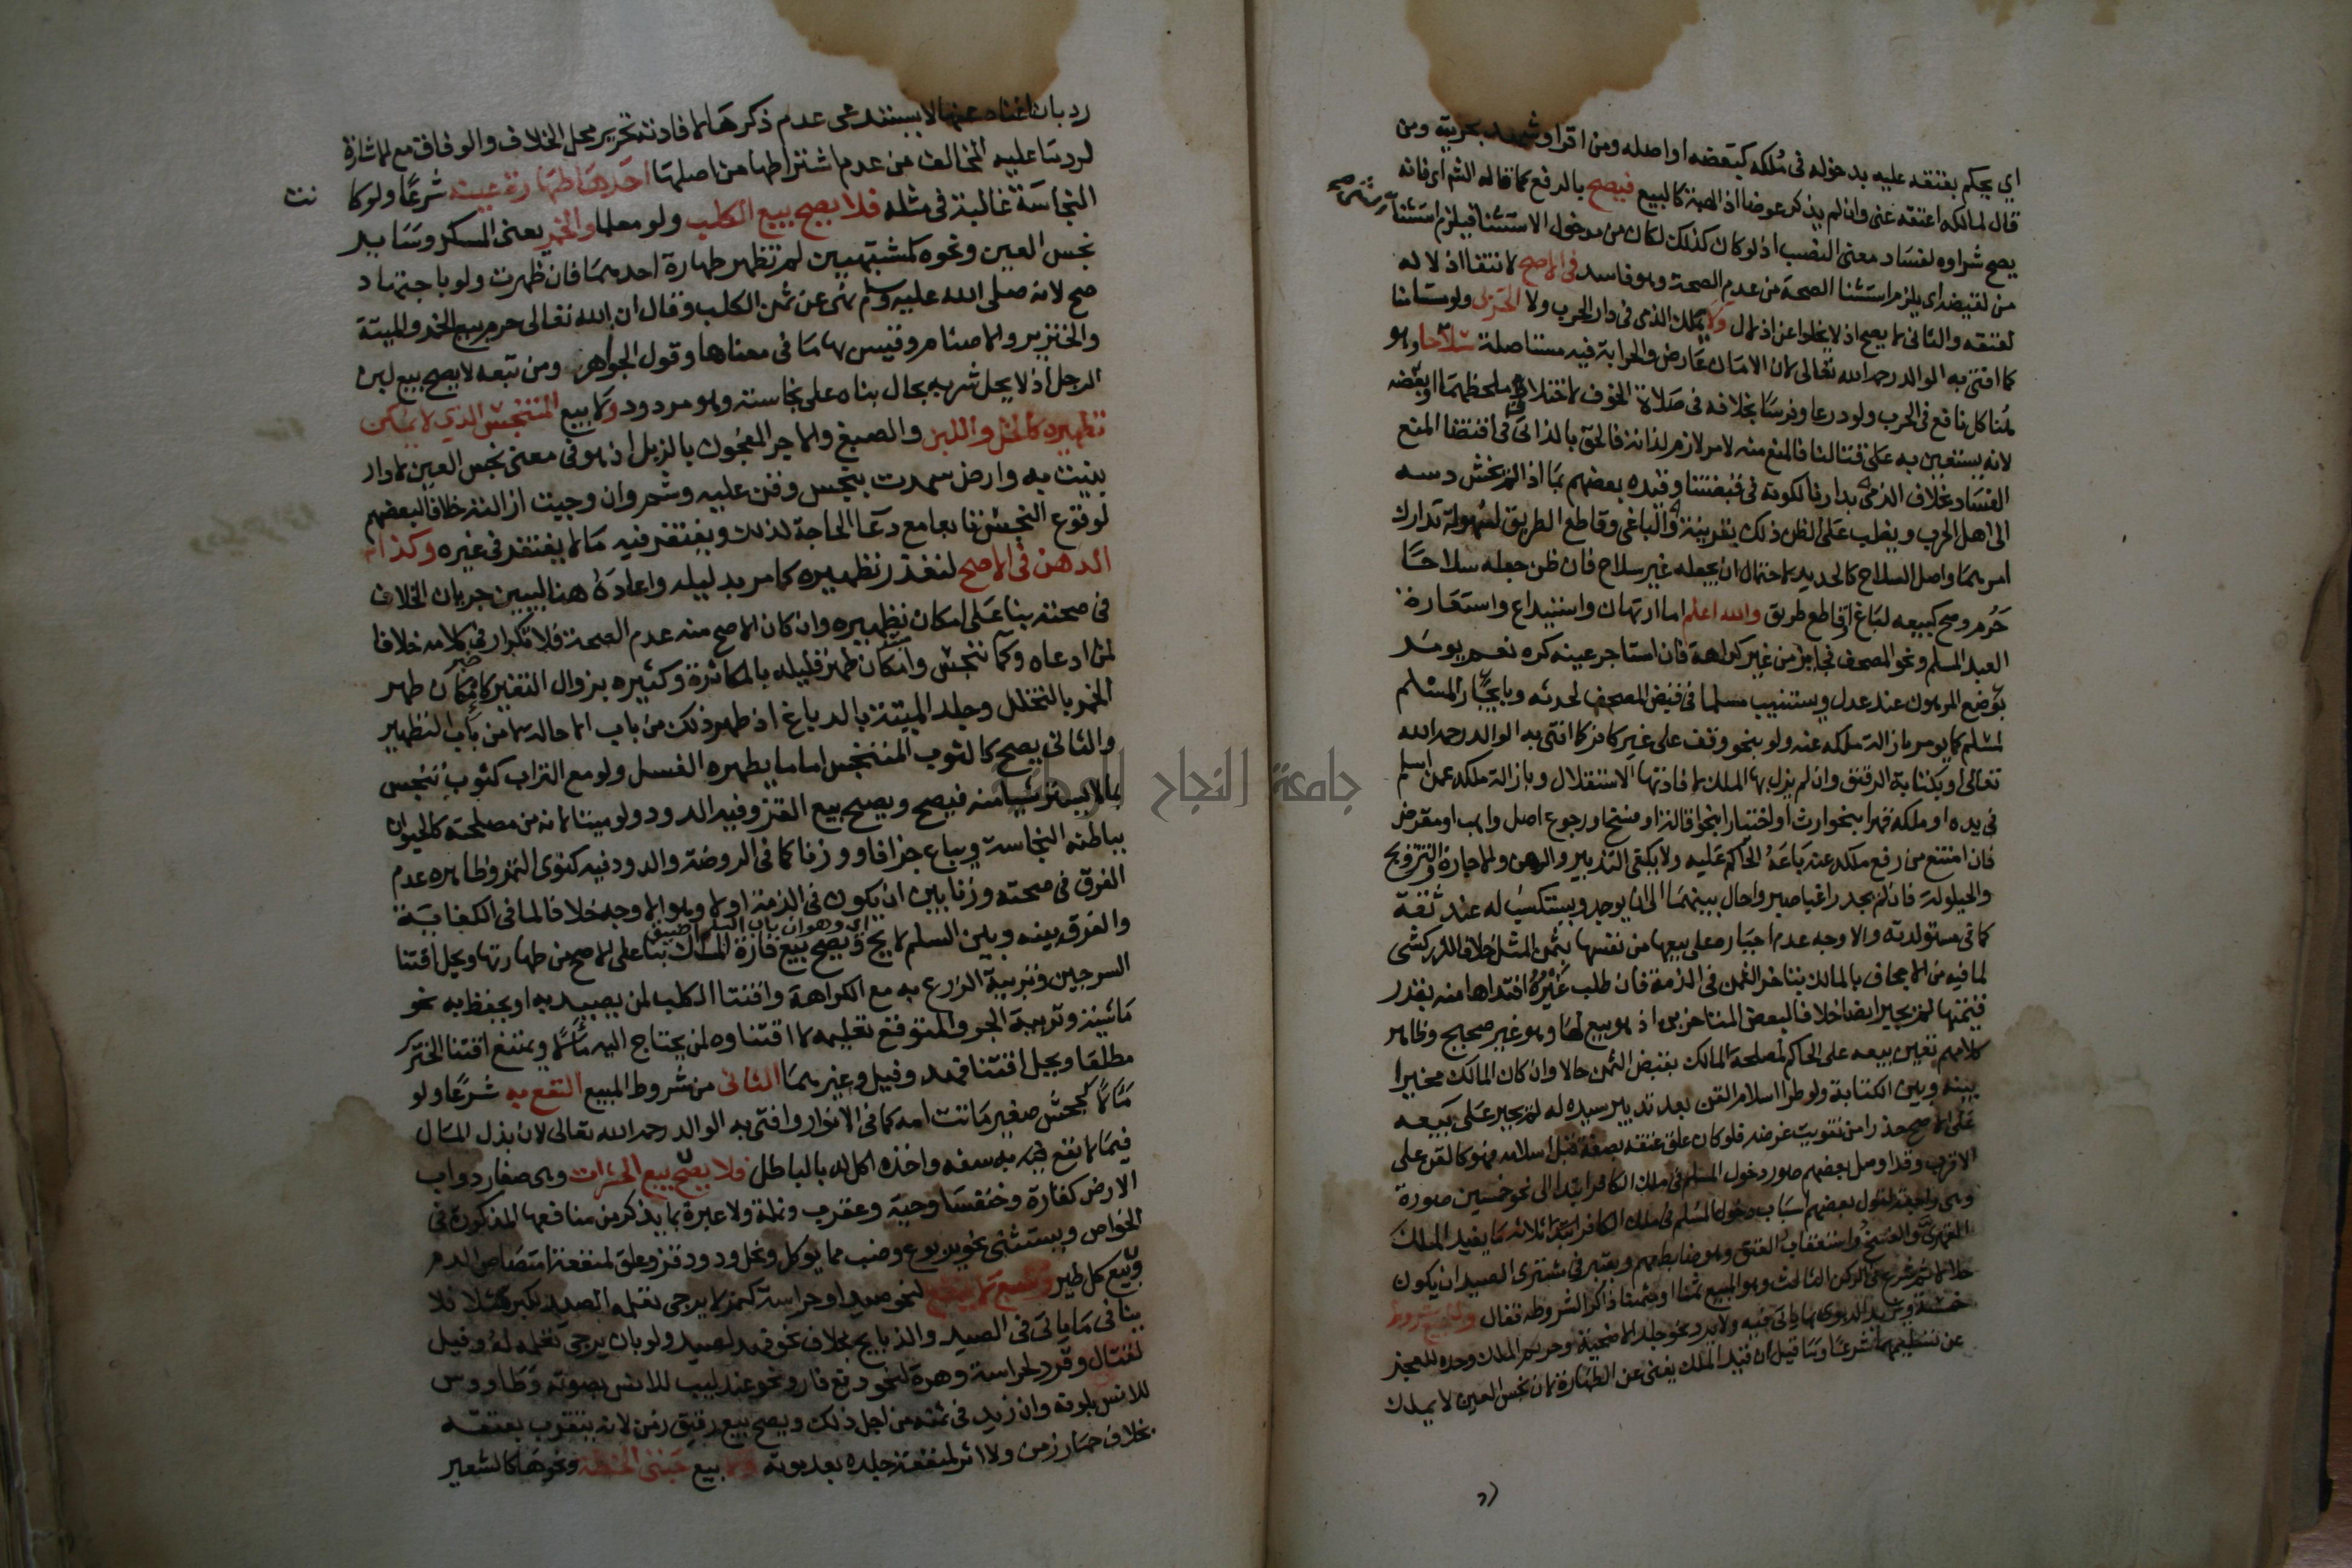 اي يحكم بعتقه عليه بدخوله فى ملكه كبعضه او اصله ومن اقر او شهد بحريته ومن
قال لمالكه اعتقه عنى وان لم يذكر عوضا اذ الهبة كالبيع فيصح بالرفع كما قاله الشم اى فانه
يصح شراوه لفساد معنى النصب اذ لو كان كذلك لكان من مدخول الاستثنا فيلزم استثنا
من نقيضه اى يلزم استثنا الصحة من عدم الصحة وهو فاسد فى الاصح لانتفا اذلاله
لعتقه والثانى لا يصح اذ لا يخلوا عن اذلال ولا تملك الذمى فى دار الحرب ولا الحربى ولو مستامنا
كما افتى به الوالد رحمه الله تعالى لان الامان عارض والحرابة فيه مستاصلة سلاحا وهو
هنا كل نافع فى الحرب ولو درعا وفرسا بخلافه فى صلاة الخوف لاختلاف ملحظهما او بعضه
لانه يستعين به على قتالنا فالمنع منه لامر لازم لذاته فالحق بالذاتى فى اقتضا المنع
الفساد بخلاف الذمى بدارنا لكونه فى قبضتنا وقيده بعضهم بما اذا لم نخش دسه
الى اهل الحرب ويغلب على الظن ذلك بقرينة والباغى وقاطع الطريق لسهولة تدارك
امرهما واصل السلاح كالحديد لاحتمال ان يجعله غير سلاح فان ظن جعله سلاحا
حرم وصح كبيعه لباغ او قاطع طريق والله اعلم اما ارتهان واستيداع واستعارة
العبد المسلم ونحو المصحف فجايز من غير كراهة فان استاجر عينه كره نعم يومر
بوضع المرهون عند عدل ويستنيب مسلما فى قبض المصحف لحدثه وبايجار المسلم
لمسلم كما يومر بازالة ملكه عنه ولو بنحو وقف على غير كافر كما افتى به الوالد رحمه الله
تعالى او بكتابة الرقيق وان لم يزل بها الملك لافادتها الاستقلال وبازالة ملكه عمن اسلم
فى يده او ملكه قهرا بنحو ارث او اختيارا بنحو اقالة او فسخ او رجوع اصل واهب او مقرض
فان امتنع من رفع ملكه عنه باعه الحاكم عليه ولا يكفى التدبير والرهن والاجارة والتزويج
والحيلولة فان لم يجد راغبا صبر واحال بينهما الى ان يوجد ويستكسب له عند ثقة
كما فى مستولدته والاوجه عدم اجباره على بيعها من نفسها بثمن المثل خلافا للزركشى
لما فيه من الاجحاف بالمالك بتاخر الثمن فى الذمة فان طلب غيره افتداها منه بقدر
قيمتها لم نجبر ايضا خلافا لبعض المتاخرين اذ هو بيع لها وهو غير صحيح وظاهر
كلامهم تعين بيعه على الحاكم لمصلحة المالك بقبض الثمن حالا وان كان المالك مخيرا
بينه وبين الكتابة ولو طرا اسلام القن بعد تدبير سيده له لم نجبر على بيعه
على الاصح حذرا من تفويت غرضه فلو كان علق عتقه بصفة قبل اسلامه فهو كالقن على
الاقرب وقد اوصل بعضهم صور دخول المسلم فى ملك الكافر ابتدا الى نحو خمسين صورة
وهى راجعة لقول بعضهم اسباب دخول المسلم فى ملك الكافر ابتدا ثلاثة ما يفيد الملك
القهرى والفسخ واستعقاب العتق وهو ضابط مهم ويعتبر فى مشترى الصيد ان يكون
حلالا ثم شرع فى الركن الثالث وهو المبيع ثمنا او مثمنا ذاكرا لشروطه فقال وللمبيع شروط
خمسة
عن تسليمهما شرعا وما قيل ان قيد الملك يغنى عن الطهارة لان نجس العين لا يملك
رد بان اغناه عنها لا يستدعى عدم ذكرها لافادته تحرير محل الخلاف والوفاق مع الاشارة
لرد ما عليه المخالف من عدم اشتراطها من اصلها احدها طهارة عينه شرعا ولو كا
نت
النجاسة غالبة فى مثله فلا يصح بيع الكلب ولو معلما والخمر يعنى المسكر وساير
نجس العين ونحوه كمشتبهين لم تظهر طهارة احدهما فان ظهرت ولو باجتهاد
صح لانه صلى الله عليه وسلم نهى عن ثمن الكلب وقال ان الله تعالى حرم بيع الخمر والميتة
والخنزير والاصنام وقيس بها ما فى معناها وقول الجواهر ومن تبعه لا يصح بيع لبن
الرجل اذ لا يحل شربه بحال بناه على نجاسته وهو مردود ولا بيع المتنجس الذي لا يمكن
تطهيره كالخل واللبن والصبغ والاجر المعجون بالزبل اذ هو فى معنى نجس العين لا دار
بنيت به وارض سمدت بنجس وقن عليه وشم وان وجبت ازالته خلافا لبعضهم
لوقوع النجس تابعا مع دعا الحاجة لذلك ويغتفر فيه ما لا يغتفر فى غيره وكذا
الدهن فى الاصح لتعذر تطهيره كما مر بدليله واعاده هنا ليبين جريان الخلاف
فى صحته بنا على امكان تطهيره وان كان الاصح منه عدم الصحة فلا تكرار فى كلامه خلافا
لمن ادعاه وكما تنجس وامكان طهر قليله بالمكاثرة وكثيره بزوال التغير كامكان طهر
الخمر بالتخلل وجلد الميتة بالدباغ اذ طهر ذلك من باب الاحالة لا من باب التطهير
والثانى يصح كالثوب المتنجس اما ما يطهره الغسل ولو مع التراب كثوب تنجس
بما لا يستر شيا منه فيصح ويصح بيع القز وفيه الدود ولو ميتا لانه من مصلحته كالحيوان
بباطنه النجاسة ويباع جزافا ووزنا كما فى الروضة والدود فيه كنوى التمر وظاهره عدم
الفرق فى صحته وزنا بين ان يكون فى الذمة او لا وهو الاوجه خلافا لما فى الكفاية
اى وهو ان باب السلم اضيق
والفرق بينه وبين السلم لايح ويصح بيع فارة المسك بنا على الاصح من طهارتها ويحل اقتنا
السرجين وتربية الزرع به مع الكراهة واقتنا الكلب لمن يصيد به او يحفظ به نحو
ماشية وتربية الجرو المتوقع تعليمه لا اقتناوه لمن يحتاج اليه مالا ويمتنع اقتنا الخنزير
مطلقا ويحل اقتنا فهد وفيل وغيرهما الثانى من شروط المبيع النفع به شرعا ولو
مالا كجحش صغير ماتت امه كما فى الانوار وافتى به الوالد رحمه الله تعالى لان بذل المال
فيما لا نفع فيه سفه واخذه اكل له بالباطل فلا يصح بيع الحشرات وهى صغار دواب
الارض كفارة وخنفسا وحية وعقرب ونملة ولا عبرة بما يذكر من منافعها المذكورة فى
الخواص ويستثنى نحو يربوع وضب مما يوكل ونحل ودود قز وعلق لمنفعة امتصاص الدم
وبيع كل طير وسبع لا ينفع لنحو صيد او حراسة كنمر لا يرجى تعلمه الصيد لكبره مثلا فلا
ينافى ما ياتى فى الصيد والذبايح بخلاف نحو فهد لصيد ولو بان يرجى تعلمه له وفيل
لقتال وقرد لحراسة وهرة لنحو دفع فار ونحو عندليب للانس بصوته وطاووس
للانس بلونه وان زيد فى ثمنه من اجل ذلك ويصح بيع رقيق زمن لانه يتقرب بعتقه
بخلاف حمار زمن ولا اثر لمنفعة جلده بعد موته ولا بيع حبتى الحنطة ونحوها كالشعير
جامعة النجاح الوطنية